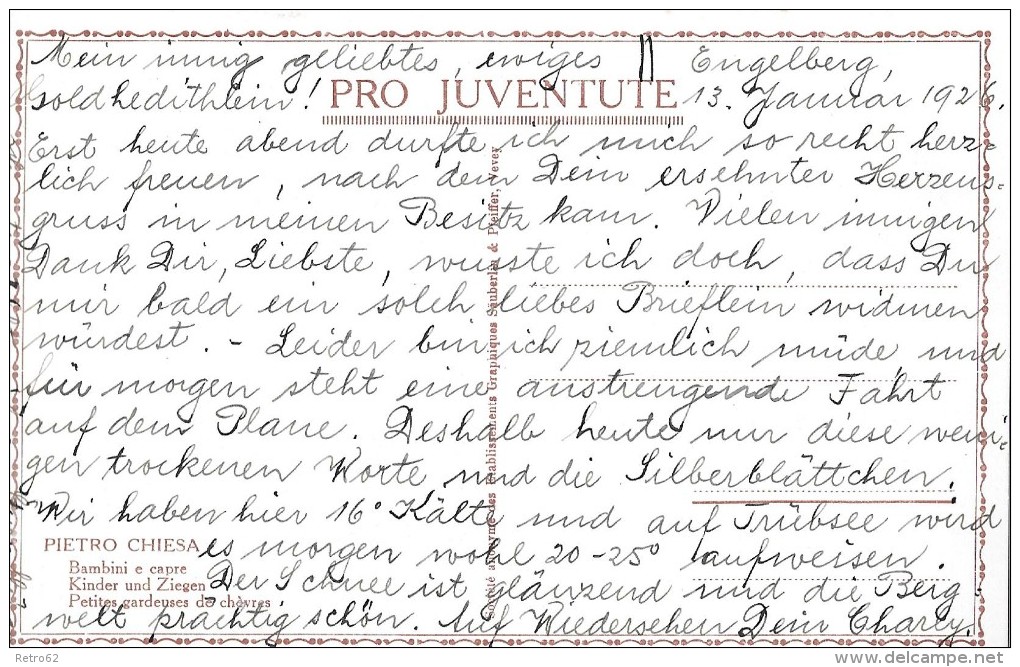 Mein innig geliebtes, ewiges
Engelberg,
Goldhedithlein!
PRO JUVENTUTE
13. Januar 1926.
Erst heute abend durfte ich mich so recht herz=
lich freuen, nach dem Dein ersehnter Herzens=
gruss in meinen Besitz kam. Vielen innigen
Dank Dir, Liebste, wusste ich doch, dass Du
mir bald ein solch liebes Brieflein widmen
würdest. - Leider bin ich ziemlich müde und
für morgen steht eine anstrengende Fahrt
auf dem Plane. Deshalb heute nur diese weni=
gen trockenen Worte und die Silberblättchen.
Wir haben hier 16° Kälte und auf Trübsee wird
es morgen wohl 20-25° aufweisen.
Der Schnee ist glänzend und die Berg
welt prächtig schön. Auf Wiedersehen Dein Charly.
PIETRO CHIESA
Bambini e capre
Kinder und Ziegen
Petites gardeuses de chèvres
Société anonyme des Etablissements Graphiques Säuberlin & Pfeiffer, Vevey
Retro62
www.delcampe.net